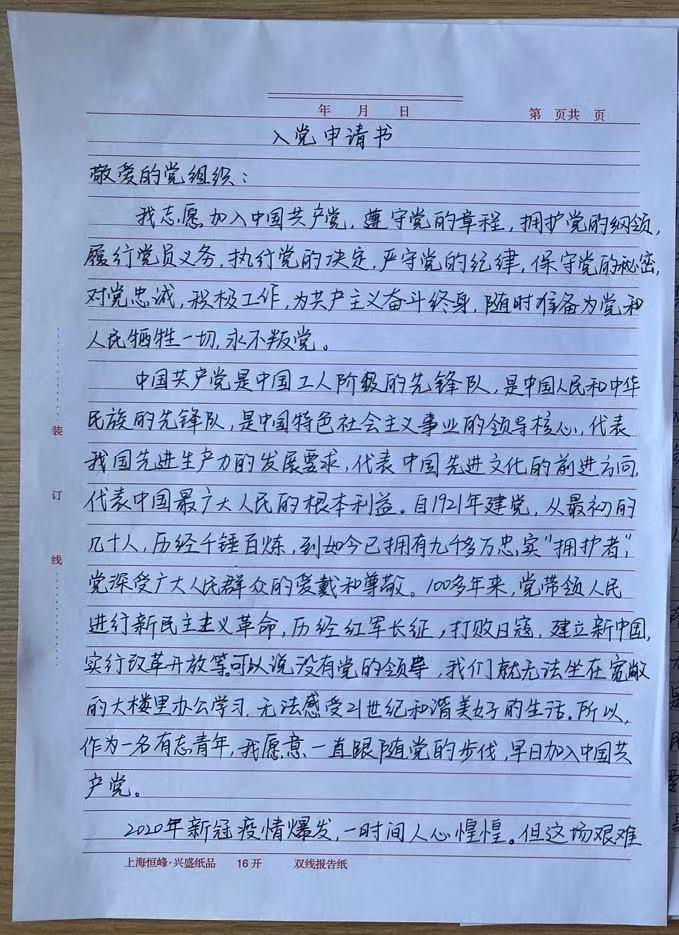 年 月 日
第 页共 页
入党申请书
敬爱的党组织：
我志愿加入中国共产党，遵守党的章程，拥护党的纲领，
履行党员义务，执行党的决定，严守党的纪律，保守党的秘密，
对党忠诚，积极工作，为共产主义奋斗终身，随时准备为党和
人民牺牲一切，永不叛党。
中国共产党是中国工人阶级的先锋队，是中国人民和中华
民族的先锋队，是中国特色社会主义事业的领导核心，代表
我国先进生产力的发展要求，代表中国先进文化的前进方向，
代表中国最广大人民的根本利益。自1921年建党，从最初的
几十人，历经千锤百炼，到如今已拥有九千多万忠实“拥护者”，
党深受广大人民群众的爱戴和尊敬。100多年来，党带领人民
进行新民主主义革命，历经红军长征，打败日寇，建立新中国，
实行改革开放等。可以说没有党的领导，我们就无法坐在宽敞
的大楼里办公学习，无法感受21世纪和谐美好的生活。所以，
作为一名有志青年，我愿意一直跟随党的步伐，早日加入中国共
产党。
2020年新冠疫情爆发，一时间人心惶惶。但这场艰难
装
订
线
上海恒峰·兴盛纸品 16开 双线报告纸